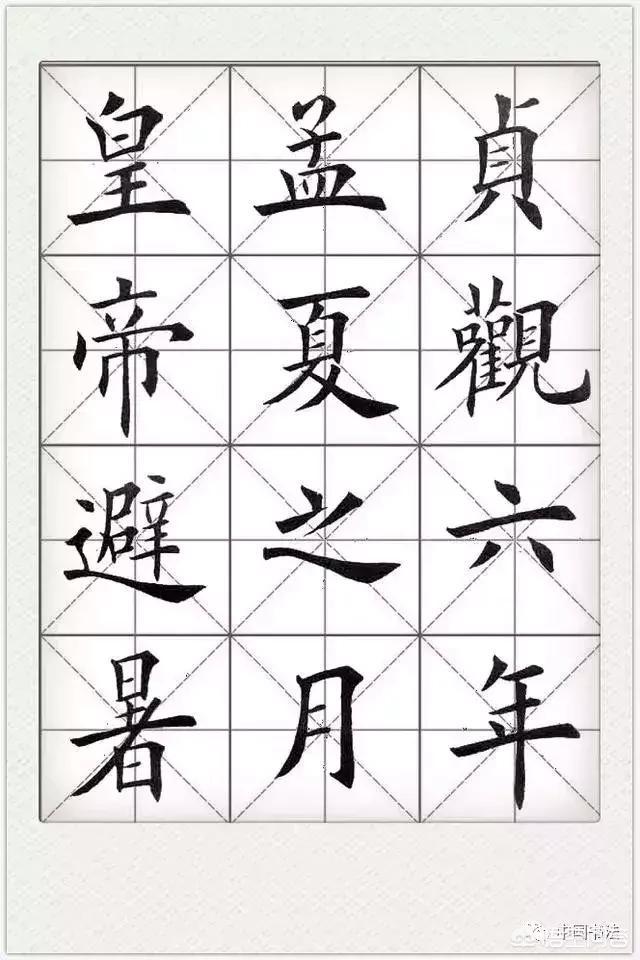 貞觀六年
孟夏之月
皇帝避暑
中国书法